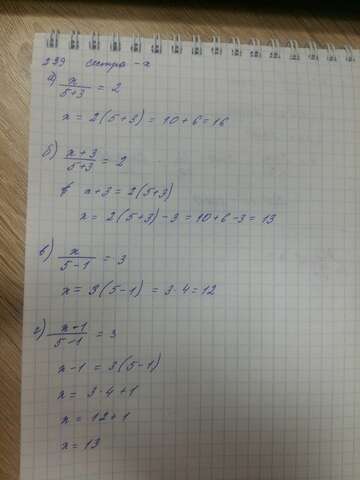 239 сестра - x
а) x/(5+3) = 2
x = 2(5+3) = 10+6 = 16
б) (x+3)/(5+3) = 2
x+3 = 2(5+3)
x = 2(5+3)-3 = 10+6-3 = 13
в) x/(5-1) = 3
x = 3(5-1) = 3·4 = 12
г) (x-1)/(5-1) = 3
x-1 = 3(5-1)
x = 3·4+1
x = 12+1
x = 13